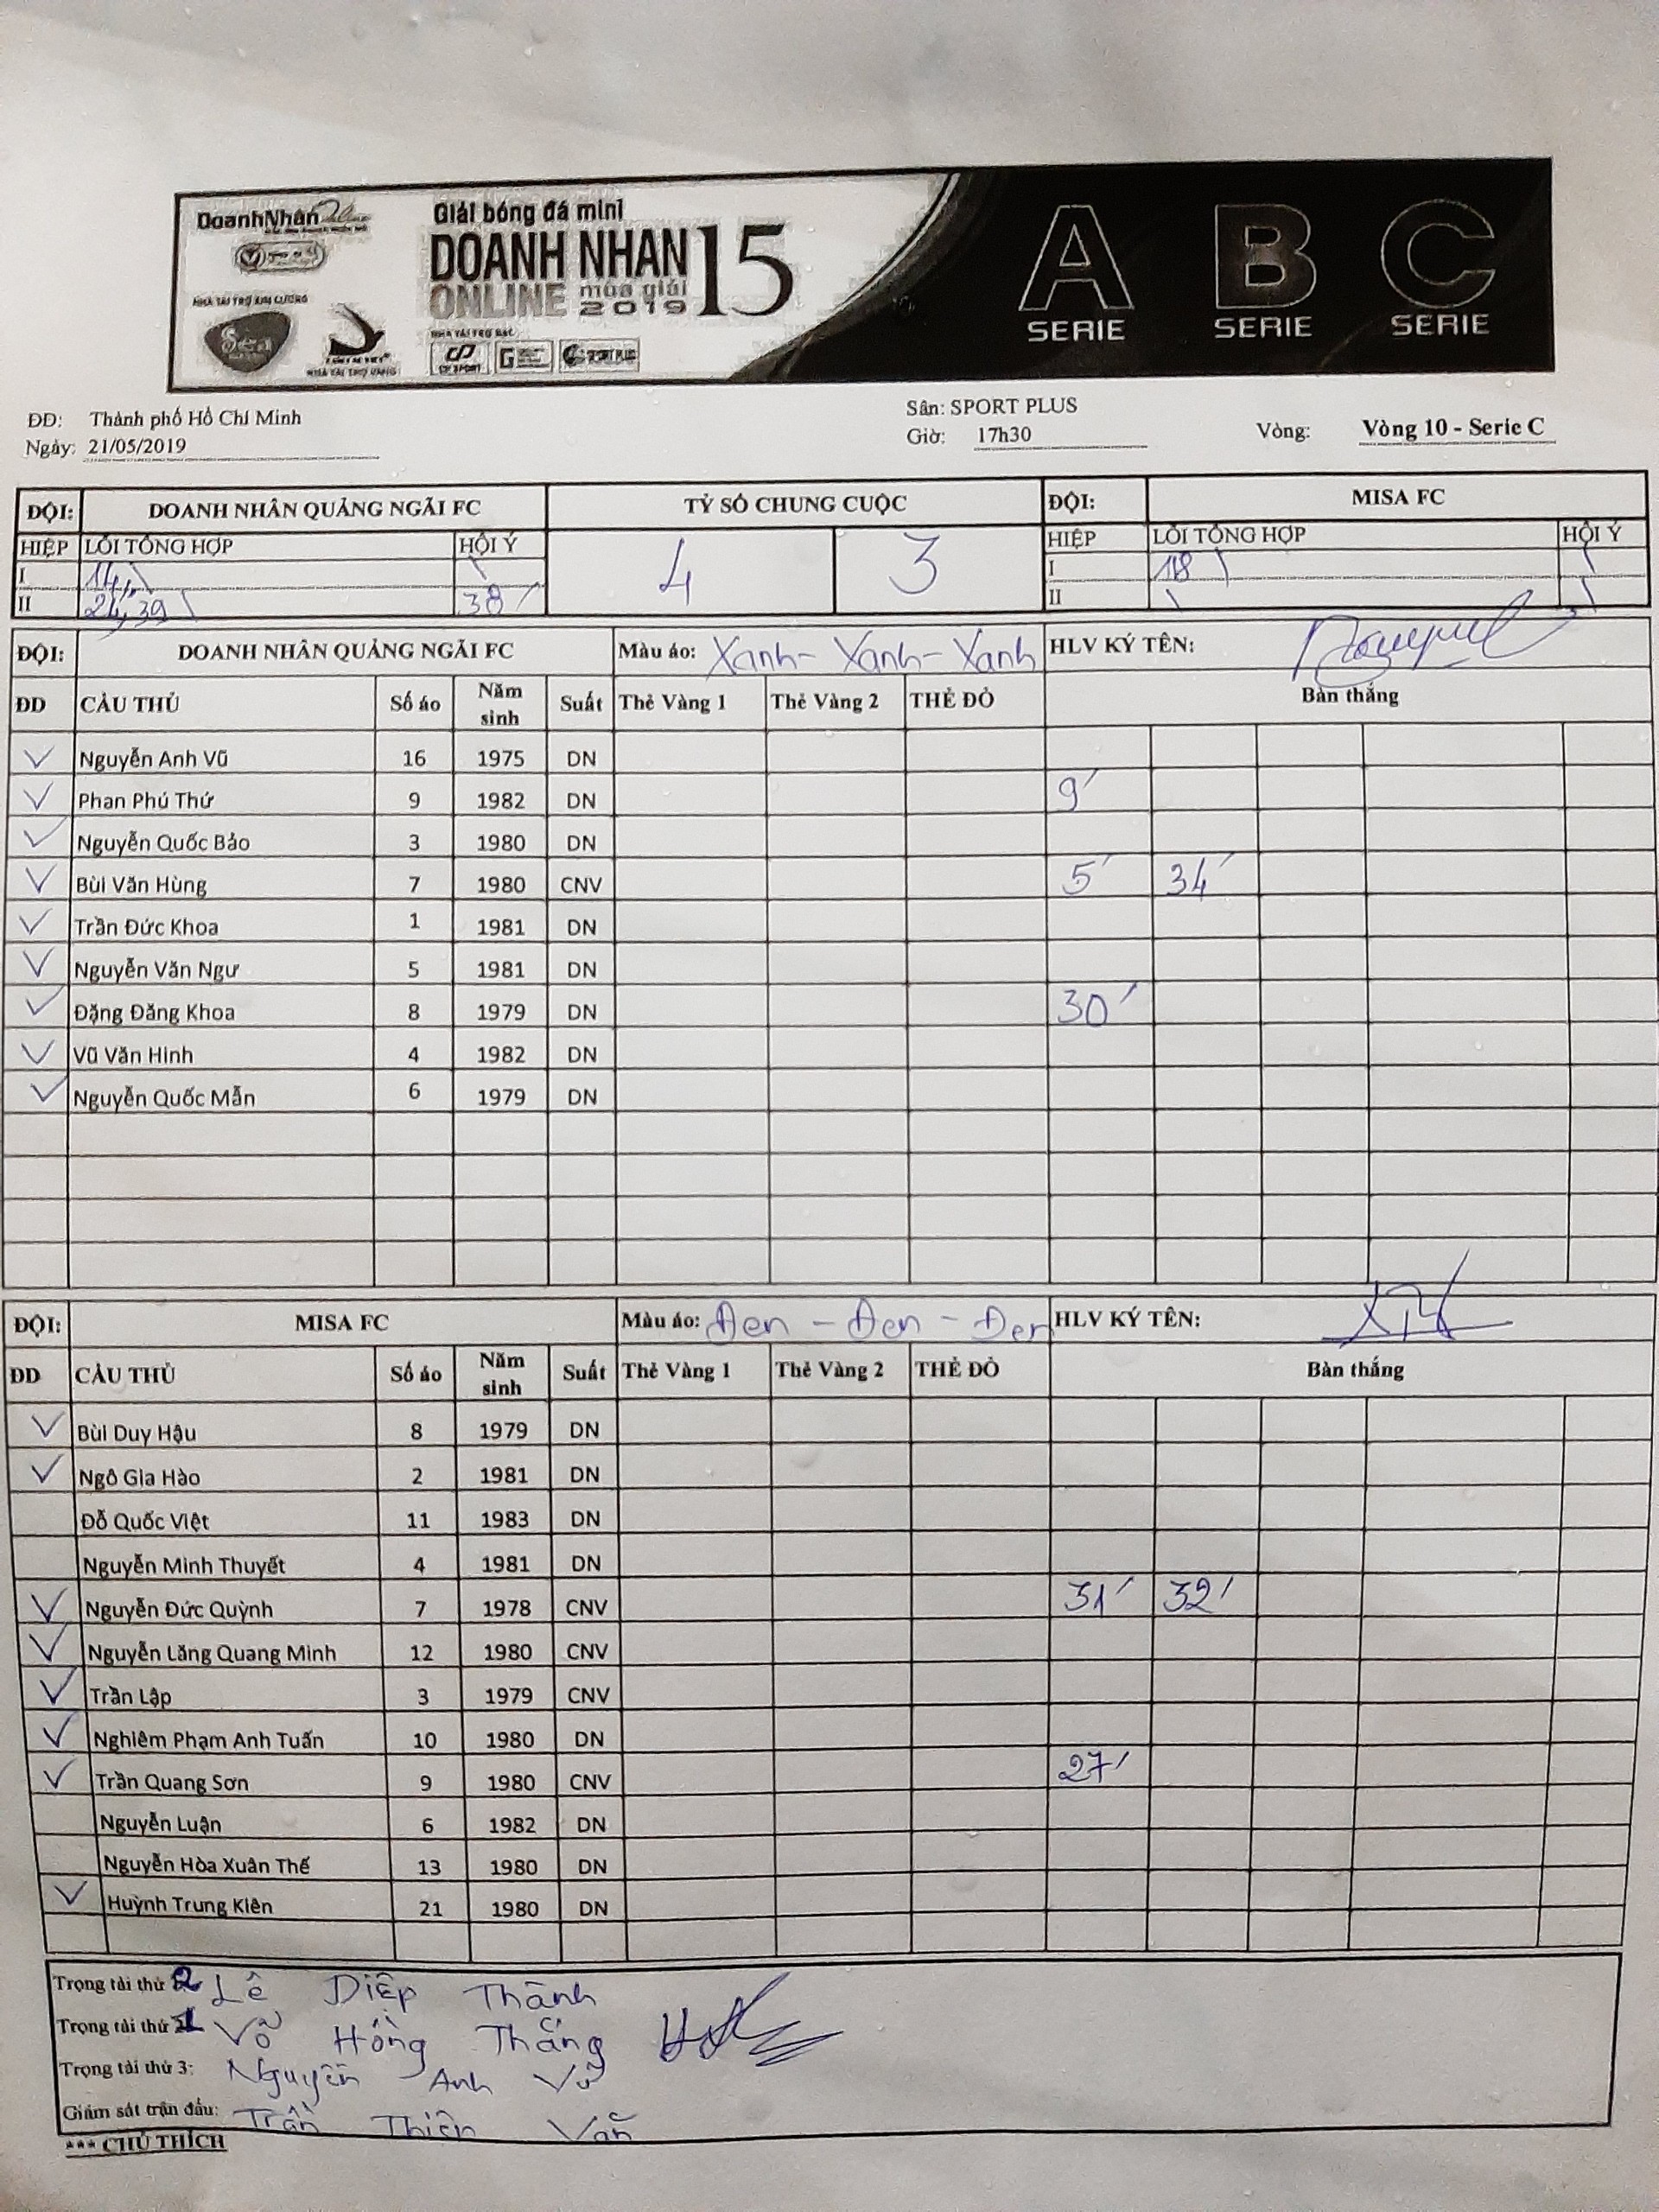 DoanhNhân Online
NHÀ TÀI TRỢ KIM CƯƠNG
NHÀ TÀI TRỢ VÀNG
Giải bóng đá mini
DOANH NHAN 15
ONLINE mùa giải 2019
NHÀ TÀI TRỢ BẠC
CP SPORT G SPORT PLUS
A SERIE B SERIE C SERIE
ĐĐ: Thành phố Hồ Chí Minh Sân: SPORT PLUS
Ngày: 21/05/2019 Giờ: 17h30 Vòng: Vòng 10 - Serie C
ĐỘI: DOANH NHÂN QUẢNG NGÃI FC TỶ SỐ CHUNG CUỘC ĐỘI: MISA FC
HIỆP LỖI TỔNG HỢP HỘI Ý 4 3 HIỆP LỖI TỔNG HỢP HỘI Ý
I 14, \ \ I 18 \ \
II 24,39 \ 38' II \ \
ĐỘI: DOANH NHÂN QUẢNG NGÃI FC Màu áo: Xanh - Xanh - Xanh HLV KÝ TÊN:
ĐD CẦU THỦ Số áo Năm sinh Suất Thẻ Vàng 1 Thẻ Vàng 2 THẺ ĐỎ Bàn thắng
✓ Nguyễn Anh Vũ 16 1975 DN
✓ Phan Phú Thứ 9 1982 DN 9'
✓ Nguyễn Quốc Bảo 3 1980 DN
✓ Bùi Văn Hùng 7 1980 CNV 5' 34'
✓ Trần Đức Khoa 1 1981 DN
✓ Nguyễn Văn Ngư 5 1981 DN
✓ Đặng Đăng Khoa 8 1979 DN 30'
✓ Vũ Văn Hinh 4 1982 DN
✓ Nguyễn Quốc Mẫn 6 1979 DN
ĐỘI: MISA FC Màu áo: Đen - Đen - Đen HLV KÝ TÊN:
ĐD CẦU THỦ Số áo Năm sinh Suất Thẻ Vàng 1 Thẻ Vàng 2 THẺ ĐỎ Bàn thắng
✓ Bùi Duy Hậu 8 1979 DN
✓ Ngô Gia Hào 2 1981 DN
Đỗ Quốc Việt 11 1983 DN
Nguyễn Minh Thuyết 4 1981 DN
✓ Nguyễn Đức Quỳnh 7 1978 CNV 31' 32'
✓ Nguyễn Lăng Quang Minh 12 1980 CNV
✓ Trần Lập 3 1979 CNV
✓ Nghiêm Phạm Anh Tuấn 10 1980 DN
✓ Trần Quang Sơn 9 1980 CNV 27'
Nguyễn Luận 6 1982 DN
Nguyễn Hòa Xuân Thế 13 1980 DN
✓ Huỳnh Trung Kiên 21 1980 DN
Trọng tài thứ 2 Lê Diệp Thành
Trọng tài thứ 1 Võ Hồng Thắng
Trọng tài thứ 3: Nguyễn Anh Vũ
Giám sát trận đấu: Trần Thiện Văn
*** CHÚ THÍCH